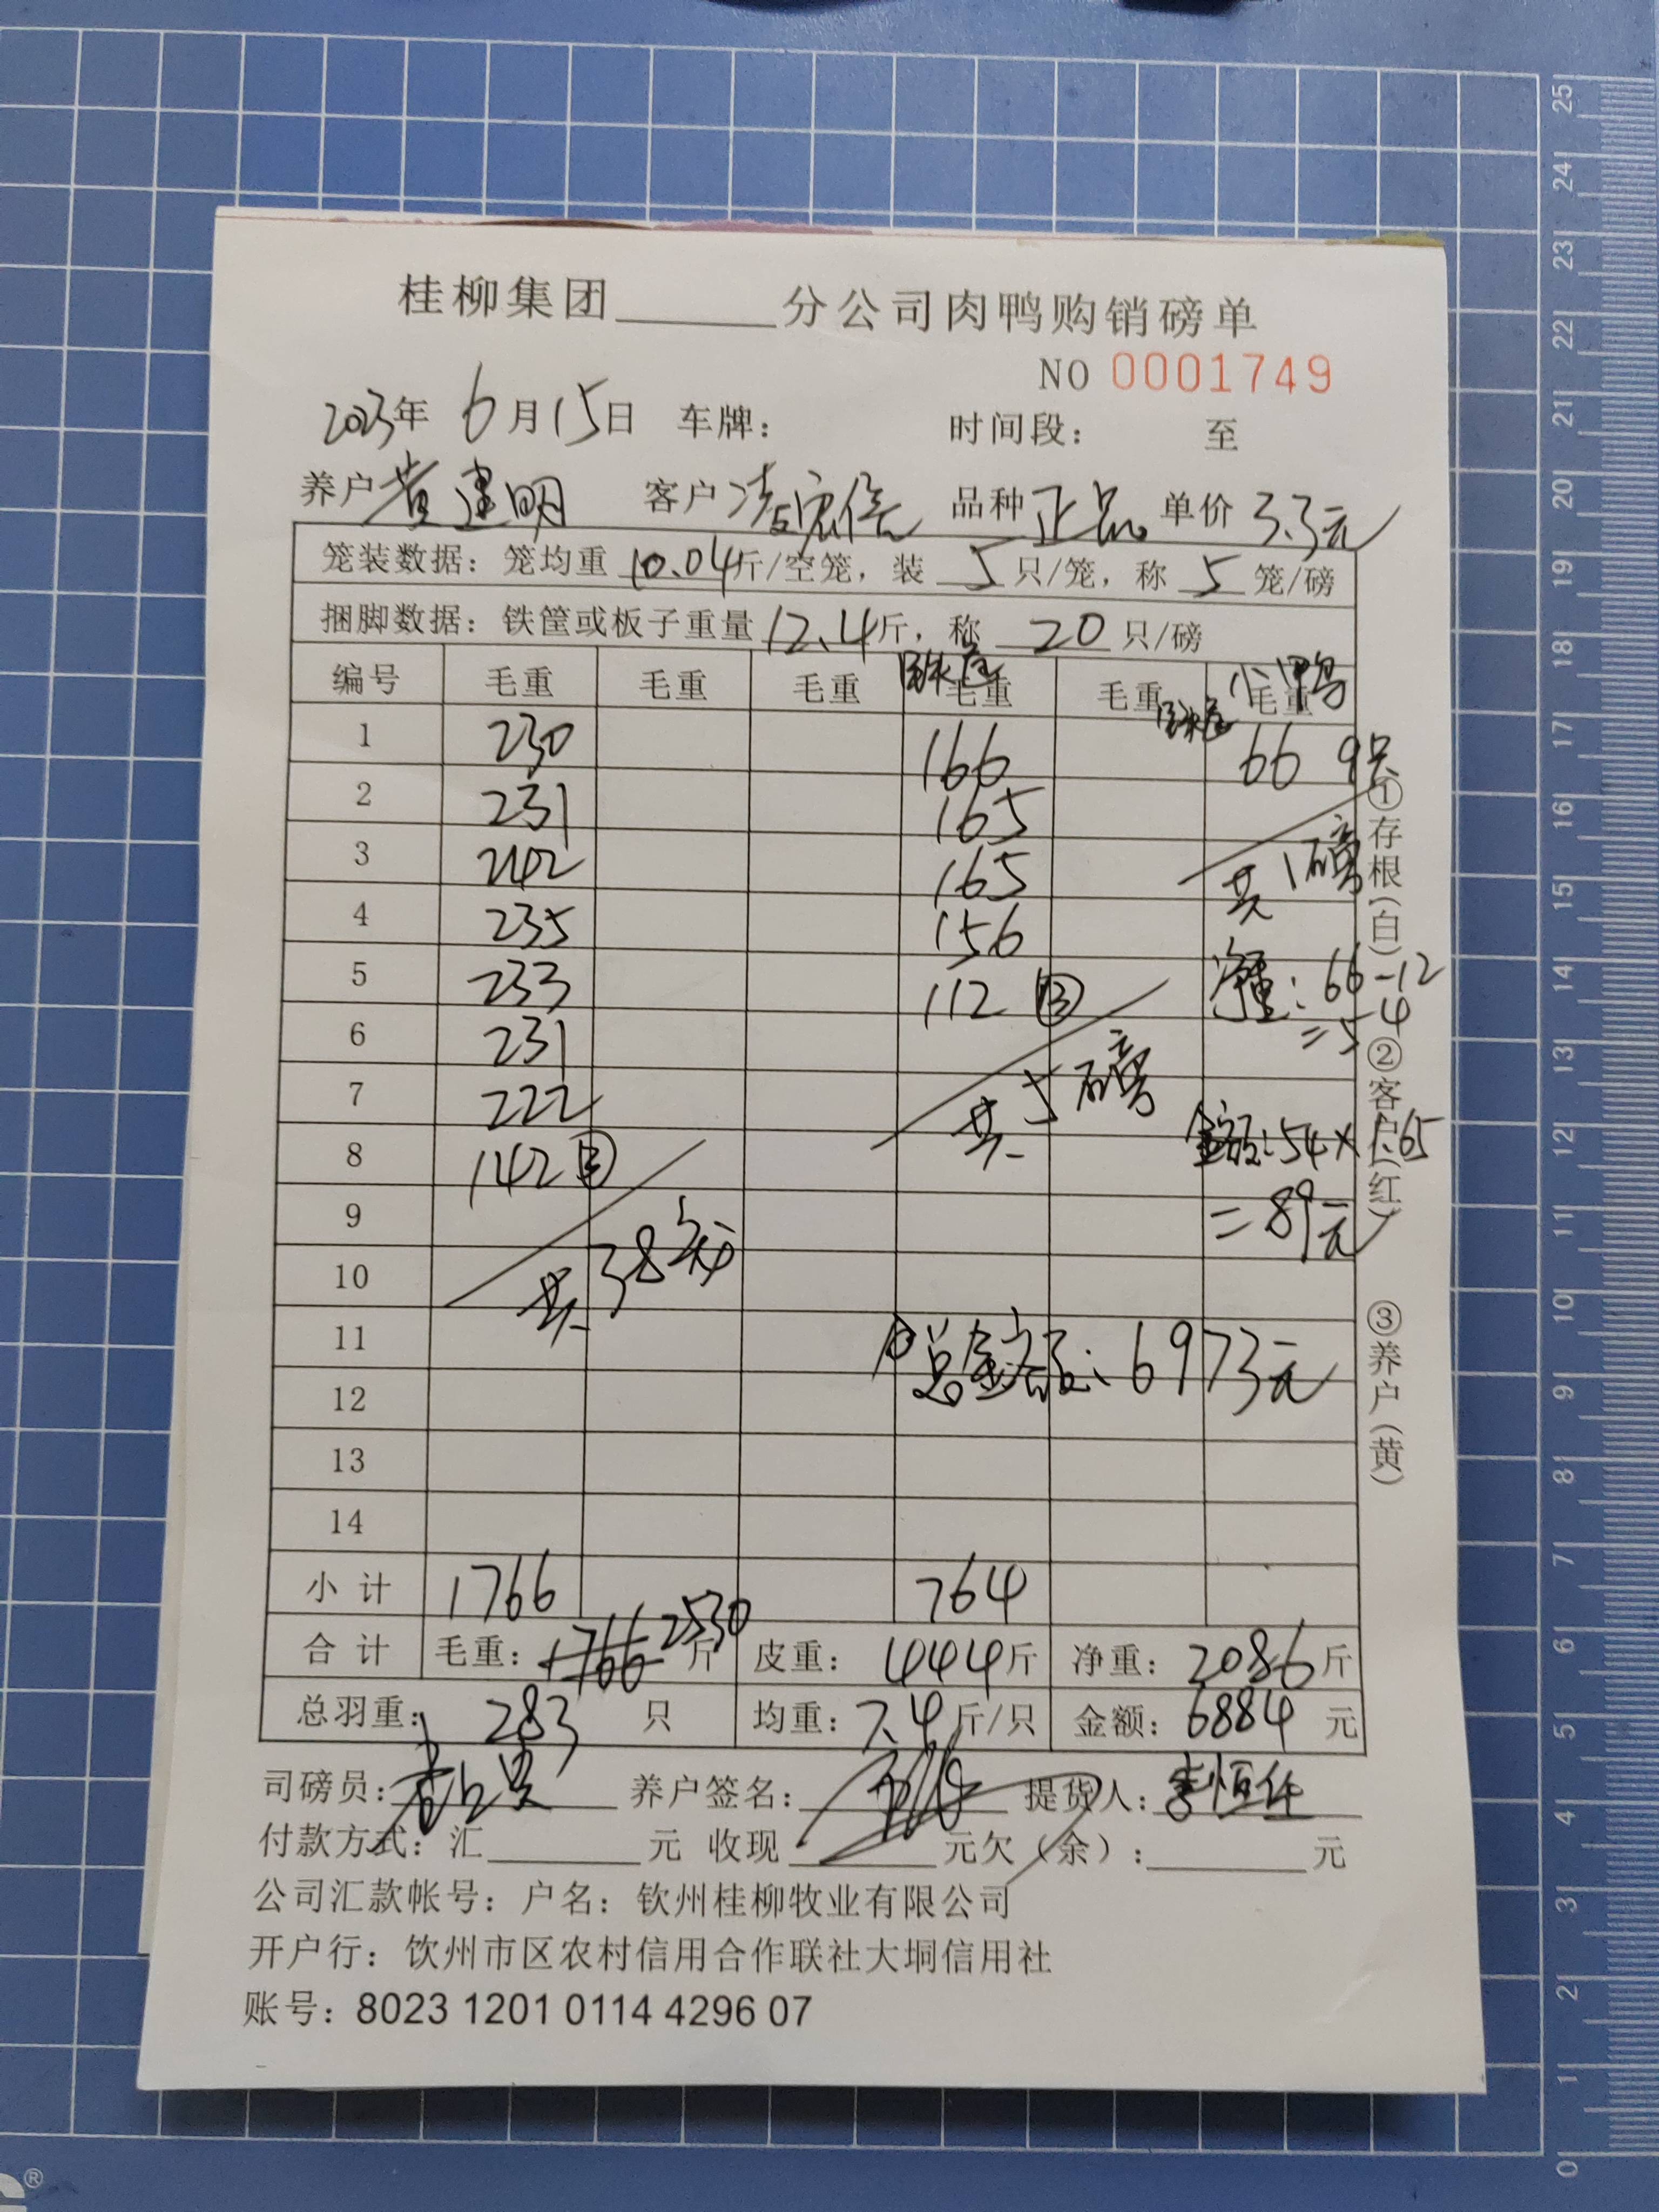 桂柳集团______分公司肉鸭购销磅单
NO 0001749
2023年 6月15日 车牌: 时间段: 至
养户 黄建明 客户 品种 正品 单价 3.3元
笼装数据: 笼均重 10.04斤/空笼, 装 5 只/笼, 称 5 笼/磅
捆脚数据: 铁筐或板子重量 12.4斤, 称 20 只/磅
编号 毛重 毛重 毛重 毛重 毛重 小鸭 毛重
1 230 166 66 9只
2 231 165
3 242 165 共1磅
4 235 156
5 233 112 ⑬ 净重:66-12
6 231 =54
7 222 共5磅
8 142 ③ 金额:54×1.65
9 =89元
10 共38笼
11 总金额:6973元
12
13
14
小计 1766 764
合计 毛重: 1766 2530 斤 皮重: 444斤 净重: 2086斤
总羽重: 283 只 均重: 7.4斤/只 金额: 6884 元
司磅员: 养户签名: 提货人: 李恒任
付款方式: 汇______元 收现______元欠(余):______元
公司汇款帐号: 户名: 钦州桂柳牧业有限公司
开户行: 饮州市区农村信用合作联社大垌信用社
账号: 8023 1201 0114 4296 07
①存根(白) ②客户(红) ③养户(黄)
25
24
23
22
21
20
19
18
17
16
15
14
13
12
11
10
9
8
7
6
5
4
3
2
1
0